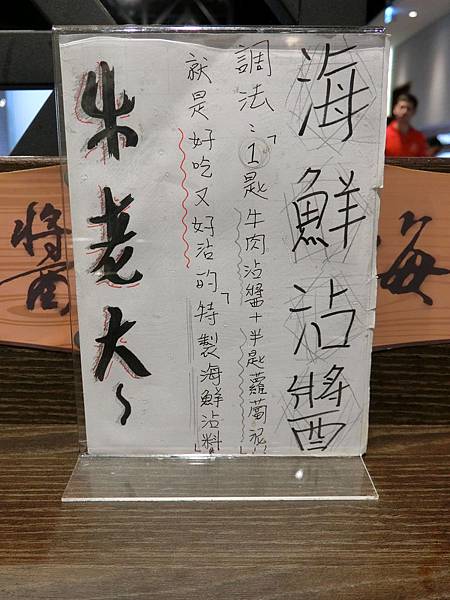 海鮮沾醬
調法：「1匙牛肉沾醬+半匙蘿蔔泥」
就是好吃又好沾的「特製海鮮沾料」
牛老大～
海
醬